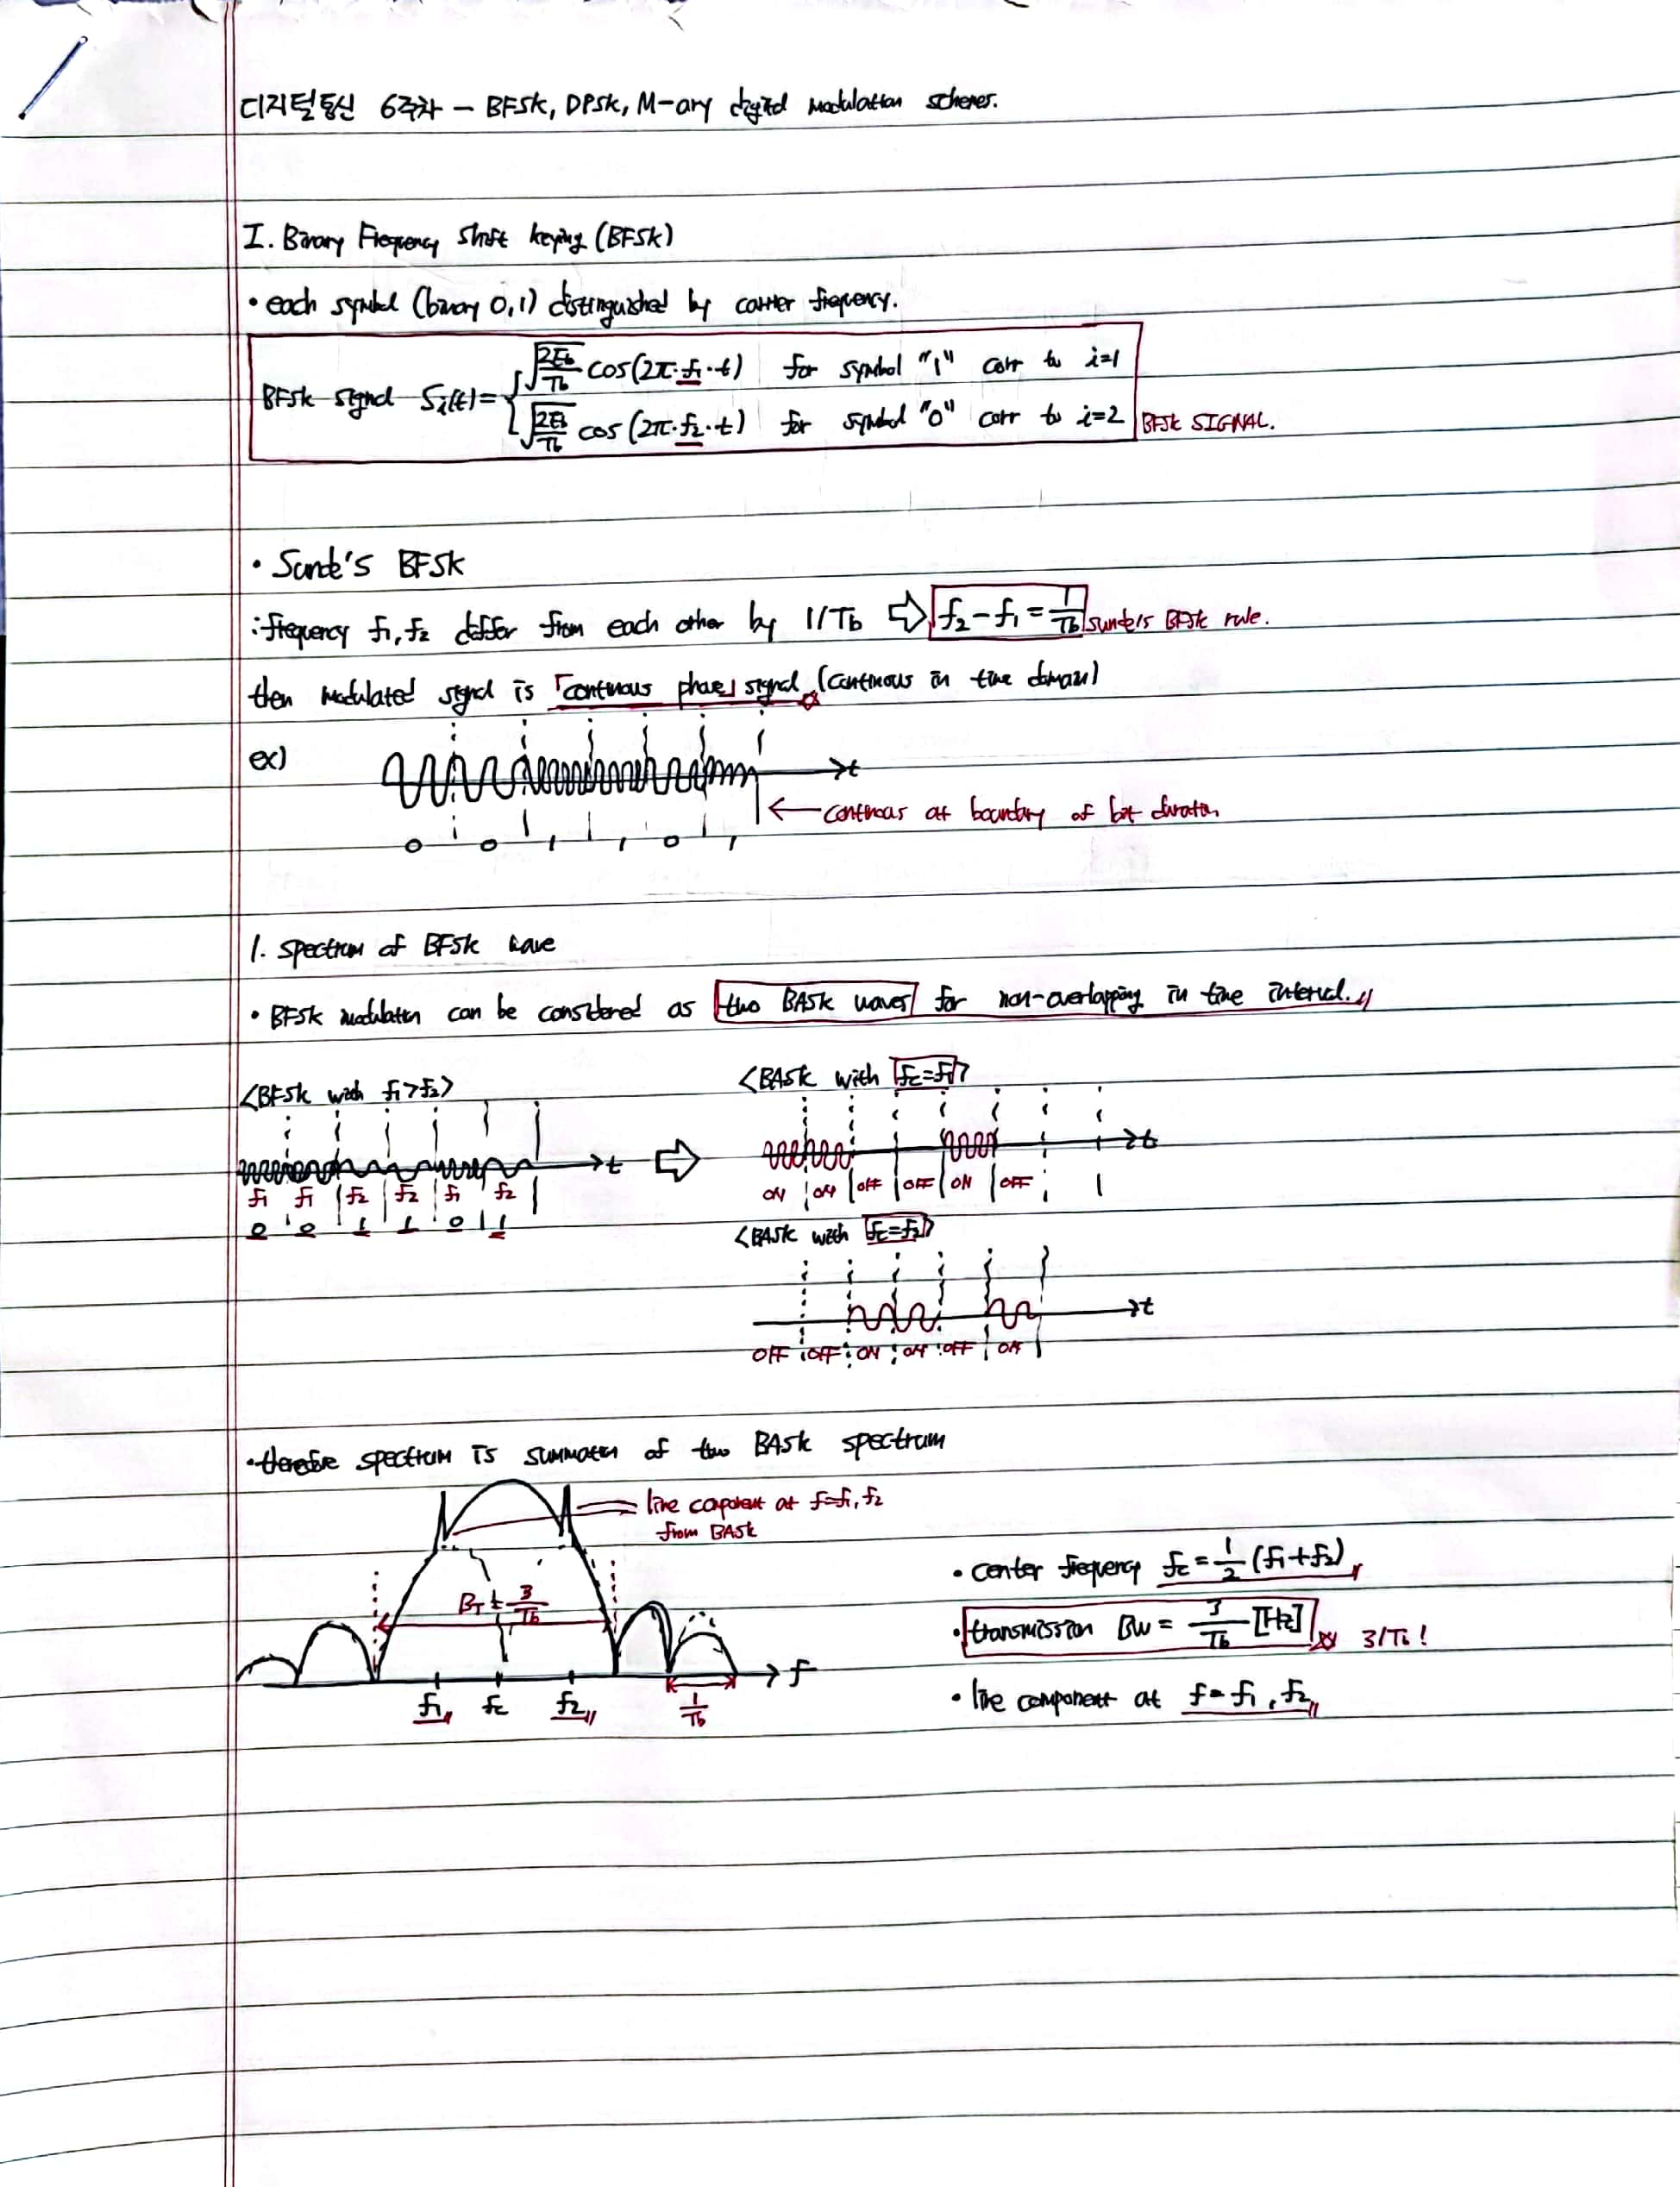 디지털통신 6주차 - BFSK, DPSK, M-ary digital modulation schemes.
I. Binary Frequency Shift keying (BFSK)
• each symbol (binary 0,1) distinguished by carrier frequency.
BFSK signal Si(t) = { √(2Eb/Tb) cos(2π·f1·t) for symbol "1" corr to i=1
√(2Eb/Tb) cos(2π·f2·t) for symbol "0" corr to i=2
BFSK SIGNAL.
• Sunde's BFSK
: frequency f1, f2 differ from each other by 1/Tb ⇨ f2 - f1 = 1/Tb sunde's BFSK rule.
then modulated signal is 「continuous phase」 signal (continuous in time domain)
ex)
t
← continuous at boundary of bit duration
0 0 1 1 0 1
1. spectrum of BFSK wave
• BFSK modulation can be considered as two BASK waves for non-overlapping in time interval.
<BFSK with f1>f2>
t
f1 f1 f2 f2 f1 f2
0 0 1 1 0 1
⇨
<BASK with fc=f1>
t
ON ON OFF OFF ON OFF
<BASK with fc=f2>
t
OFF OFF ON ON OFF ON
• therefore spectrum is summation of two BASK spectrum
line component at f=f1, f2
from BASK
BT = 3/Tb
f
f1 fc f2 1/Tb
• center frequency fc = 1/2 (f1+f2)
• transmission BW = 3/Tb [Hz] ☆ 3/Tb!
• line component at f = f1, f2